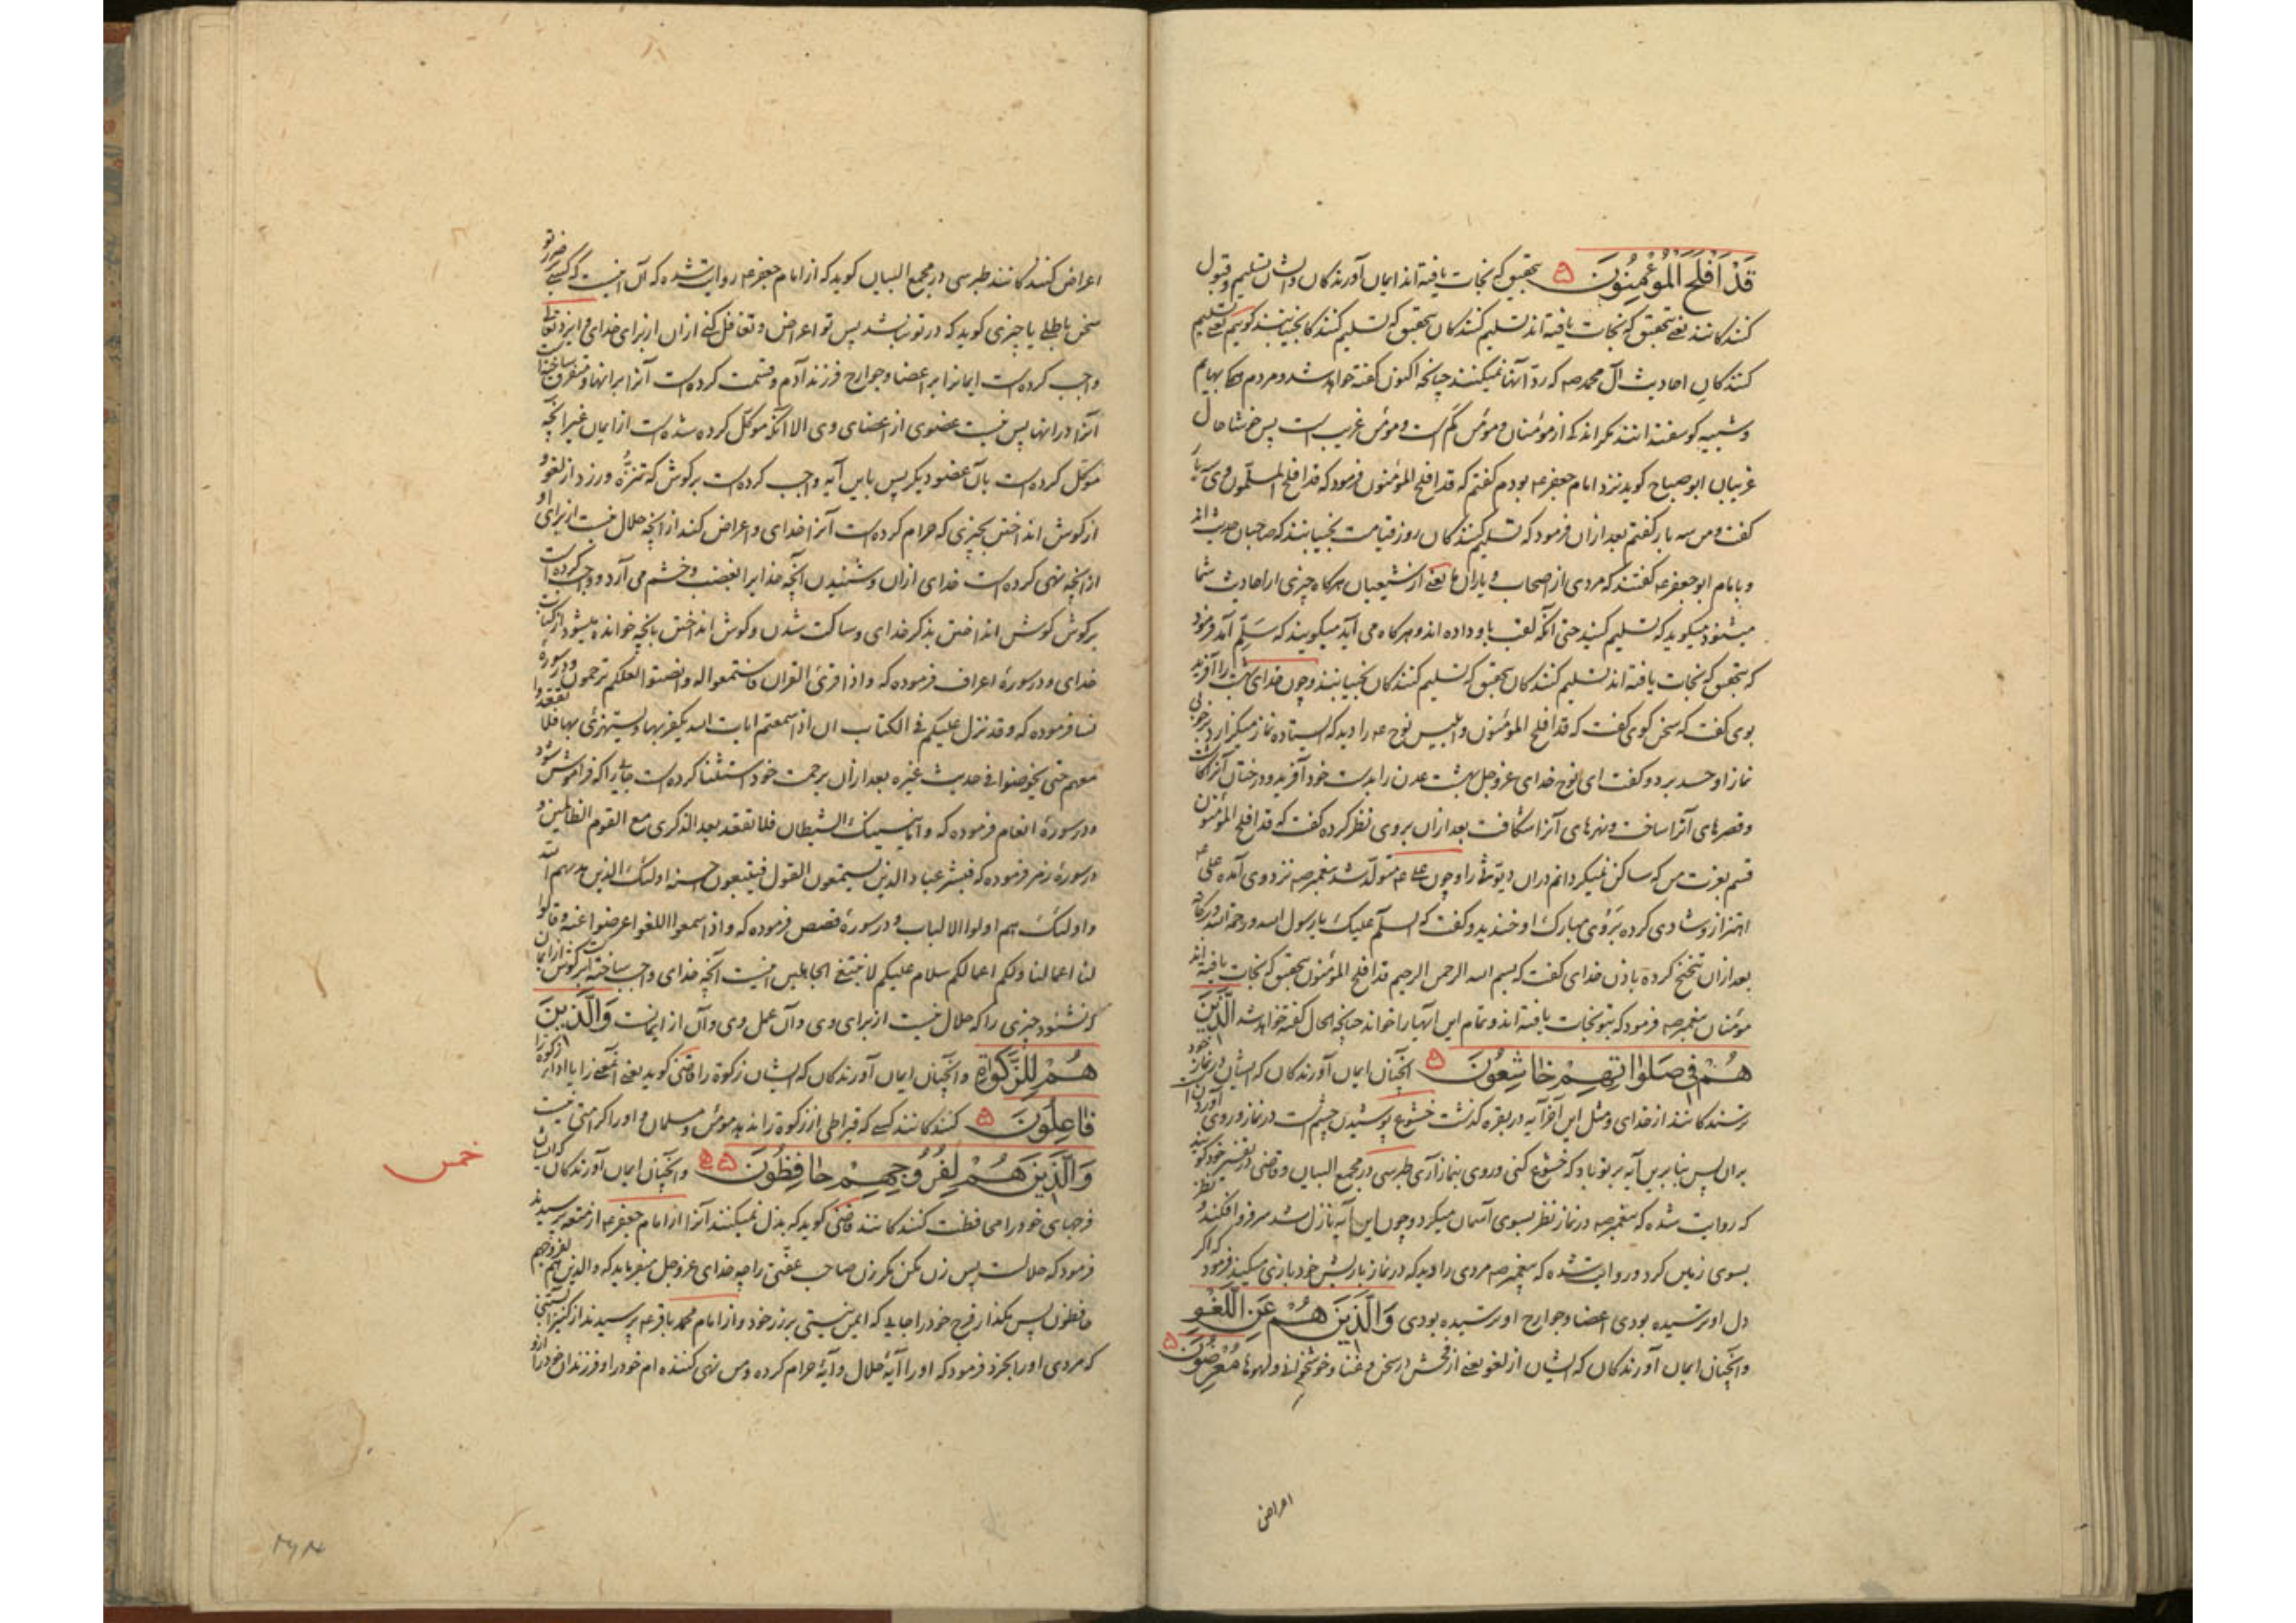 قَدْ اَفْلَحَ الْمُؤْمِنُونَ ۵ بتحقیق که نجات یافته اند ایمان آورندکان واثان تسلیم و قبول
کنندکانند یعنے بتحقیق که نجات یافته اند تسلیم کنندکان بتحقیق که تسلیم کنندکان نجیبانند کوئیم یعنے تسلیم
کنندکان احادیث آل محمد صه که رد آنها نمیکنند چنانچه اکنون کفته خواهد شد و مردم بهایم
و شبیه کوسفندانند مکر اندکے از مؤمنان و مؤمن کم است و مؤمن غریب است پس خوشا حال
غریبان ابو صباح کوید نزد امام جعفر عه بودم کفتم که قد افلح المؤمنون فرمود که قد افلح المسلمون وی سه بار
کفت و من سه بار کفتم بعد ازان فرمود که تسلیم کنندکان روز قیامت نجیبانند که صاحبان حدیث اند
و بامام ابو جعفر عه کفتند که مردی از اصحاب و یاران ما یعنے از شیعیان هرکاه چیزی از احادیث شما
میشنود میکوید که تسلیم کنید حتی آنکه لقب باو داده اند و هرکاه می آید میکویند که سَلِّم آمد فرمود
که بتحقیق که نجات یافته اند تسلیم کنندکان بتحقیق که تسلیم کنندکان نجیبانند و چون خدای بهشت را آفرید
بوی کفت که سخن کوی کفت که قد افلح المؤمنون و ابلیس نوح عه را دید که ایستاده نماز میکزارد
نماز او حسد برد و کفت ای نوح خدای عزوجل بهشت عدن را بدست خود آفرید و درختان آنرا کاشت
و قصرهای آنرا ساخت و نهرهای آنرا شکافت بعد ازان بروی نظر کرده کفت که قد افلح المؤمنون
قسم بعزت من که ساکن نمیکردانم دران دیوث را و چون علے عه متولد شد پیغمبر صه نزد وی آمده علی عه
اهتزاز و شادی کرده بروی مبارک او خندید و کفت که السلام علیک یا رسول الله ورحمة الله وبرکاته
بعد ازان تنحنح کرده باذن خدای کفت که بسم الله الرحمن الرحیم قد افلح المؤمنون بتحقیق که نجات یافته اند
مؤمنان پیغمبر صه فرمود که بتو نجات یافته اند و تمام این آیتها را خواند چنانچه الحال کفته خواهد شد الَّذِینَ
هُمْ فِی صَلَوَاتِهِمْ خَاشِعُونَ ۵ آنچنان ایمان آورندکان که ایشان در نماز خود
ترسندکانند از خدای و مثل این آخر آیه در بقره کذشت خشوع پوشیدن چشم است در نماز و روی آوردن
بران پس بنا برین آیه بر تو باد که خشوع کنی و روی بنماز آری طبرسی در مجمع البیان و قاضی در تفسیر خود کویند
که روایت شده که پیغمبر صه در نماز نظر بسوی آسمان میکرد و چون این آیه نازل شد سر فرو افکند و نظر
بسوی زمین کرد و روایت شده که پیغمبر صه مردی را دید که در نماز با ریش خود بازی میکند فرمود که اکر
دل او ترسیده بودی اعضا و جوارح او ترسیده بودی وَالَّذِینَ هُمْ عَنِ اللَّغْوِ
وآنچنان ایمان آورندکان که ایشان از لغو یعنے از فحش در سخن و غنا و لهوها مُعْرِضُونَ ۵
اعراض
اعراض کنندکانند طبرسی در مجمع البیان کوید که از امام جعفر عه روایت شده که آن اینست که کسے بر تو
سخن باطلے یا چیزی کوید که در تو نباشد پس تو اعراض و تغافل کنے ازان از برای خدای و ایزد تعالی
واجب کرده است ایمانرا بر اعضا و جوارح فرزند آدم و قسمت کرده است آنرا برانها و متفرق ساخته است
آنرا درانها پس نیست عضوی از اعضای وی الا آنکه موکل کرده شده است از ایمان غیر آنچه
موکل کرده است بآن عضو دیکر پس باین آیه واجب کرده است بر کوش که تنزه ورزد از لغو و
از کوش انداختن بچیزی که حرام کرده است آنرا خدای و اعراض کند از آنچه حلال نیست از برای او
از آنچه نهی کرده است خدای ازان و شنیدن آنچه خدا را بغضب و خشم می آرد و واجب کرده است
بر کوش کوش انداختن بذکر خدای و ساکت شدن و کوش انداختن بآنچه خوانده میشود از کتاب
خدای و در سورۀ اعراف فرموده که واذا قرئ القران فاستمعوا له وانصتوا لعلکم ترحمون و در سورۀ
نسا فرموده که وقد نزل علیکم فی الکتاب ان اذا سمعتم ایات الله یکفر بها ویستهزئ بها فلا تقعدوا
معهم حتی یخوضوا فی حدیث غیره بعد ازان برحمت خود استثنا کرده است جائے را که فراموش شود
و در سورۀ انعام فرموده که واما ینسینک الشیطان فلا تقعد بعد الذکری مع القوم الظالمین و
در سورۀ زمر فرموده که فبشر عباد الذین یستمعون القول فیتبعون احسنه اولئک الذین هدیهم الله
واولئک هم اولوا الالباب و در سورۀ قصص فرموده که واذا سمعوا اللغو اعرضوا عنه وقالوا
لنا اعمالنا ولکم اعمالکم سلام علیکم لا نبتغی الجاهلین اینست آنچه خدای واجب ساخته است بر کوش از ایمان
که نشنود چیزی را که حلال نیست از برای وی و آن عمل وی و آن از ایمانست وَالَّذِینَ
هُمْ لِلزَّکَوٰةِ وآنچنان ایمان آورندکان که ایشان زکوة را قاضی کوید یعنے
فَاعِلُونَ ۵ کنندکانند کسے که قیراطی از زکوة را ندهد مؤمن و مسلمان و او را کرامتی نیست
وَالَّذِینَ هُمْ لِفُرُوجِهِمْ حَافِظُونَ ۵ وآنچنان ایمان آورندکان که ایشان
خمس
فرجهای خود را محافظت کنندکانند قاضی کوید که بذل نمیکنند آنرا از امام جعفر عه از متعه پرسیدند
فرمود که حلالست پس زن مکن مکر زن صاحب عفتی را چه خدای عزوجل میفرماید که والذین هم لفروجهم
حافظون پس مکذار فرج خود را جایے که ایمن نیستی بر زر خود و از امام محمد باقر عه پرسیدند از کنیز
که مردی او را بخرد فرمود که او را آیۀ حلال و آیۀ حرام کرده و من نهی کننده ام خود را و فرزندان خود را ازو